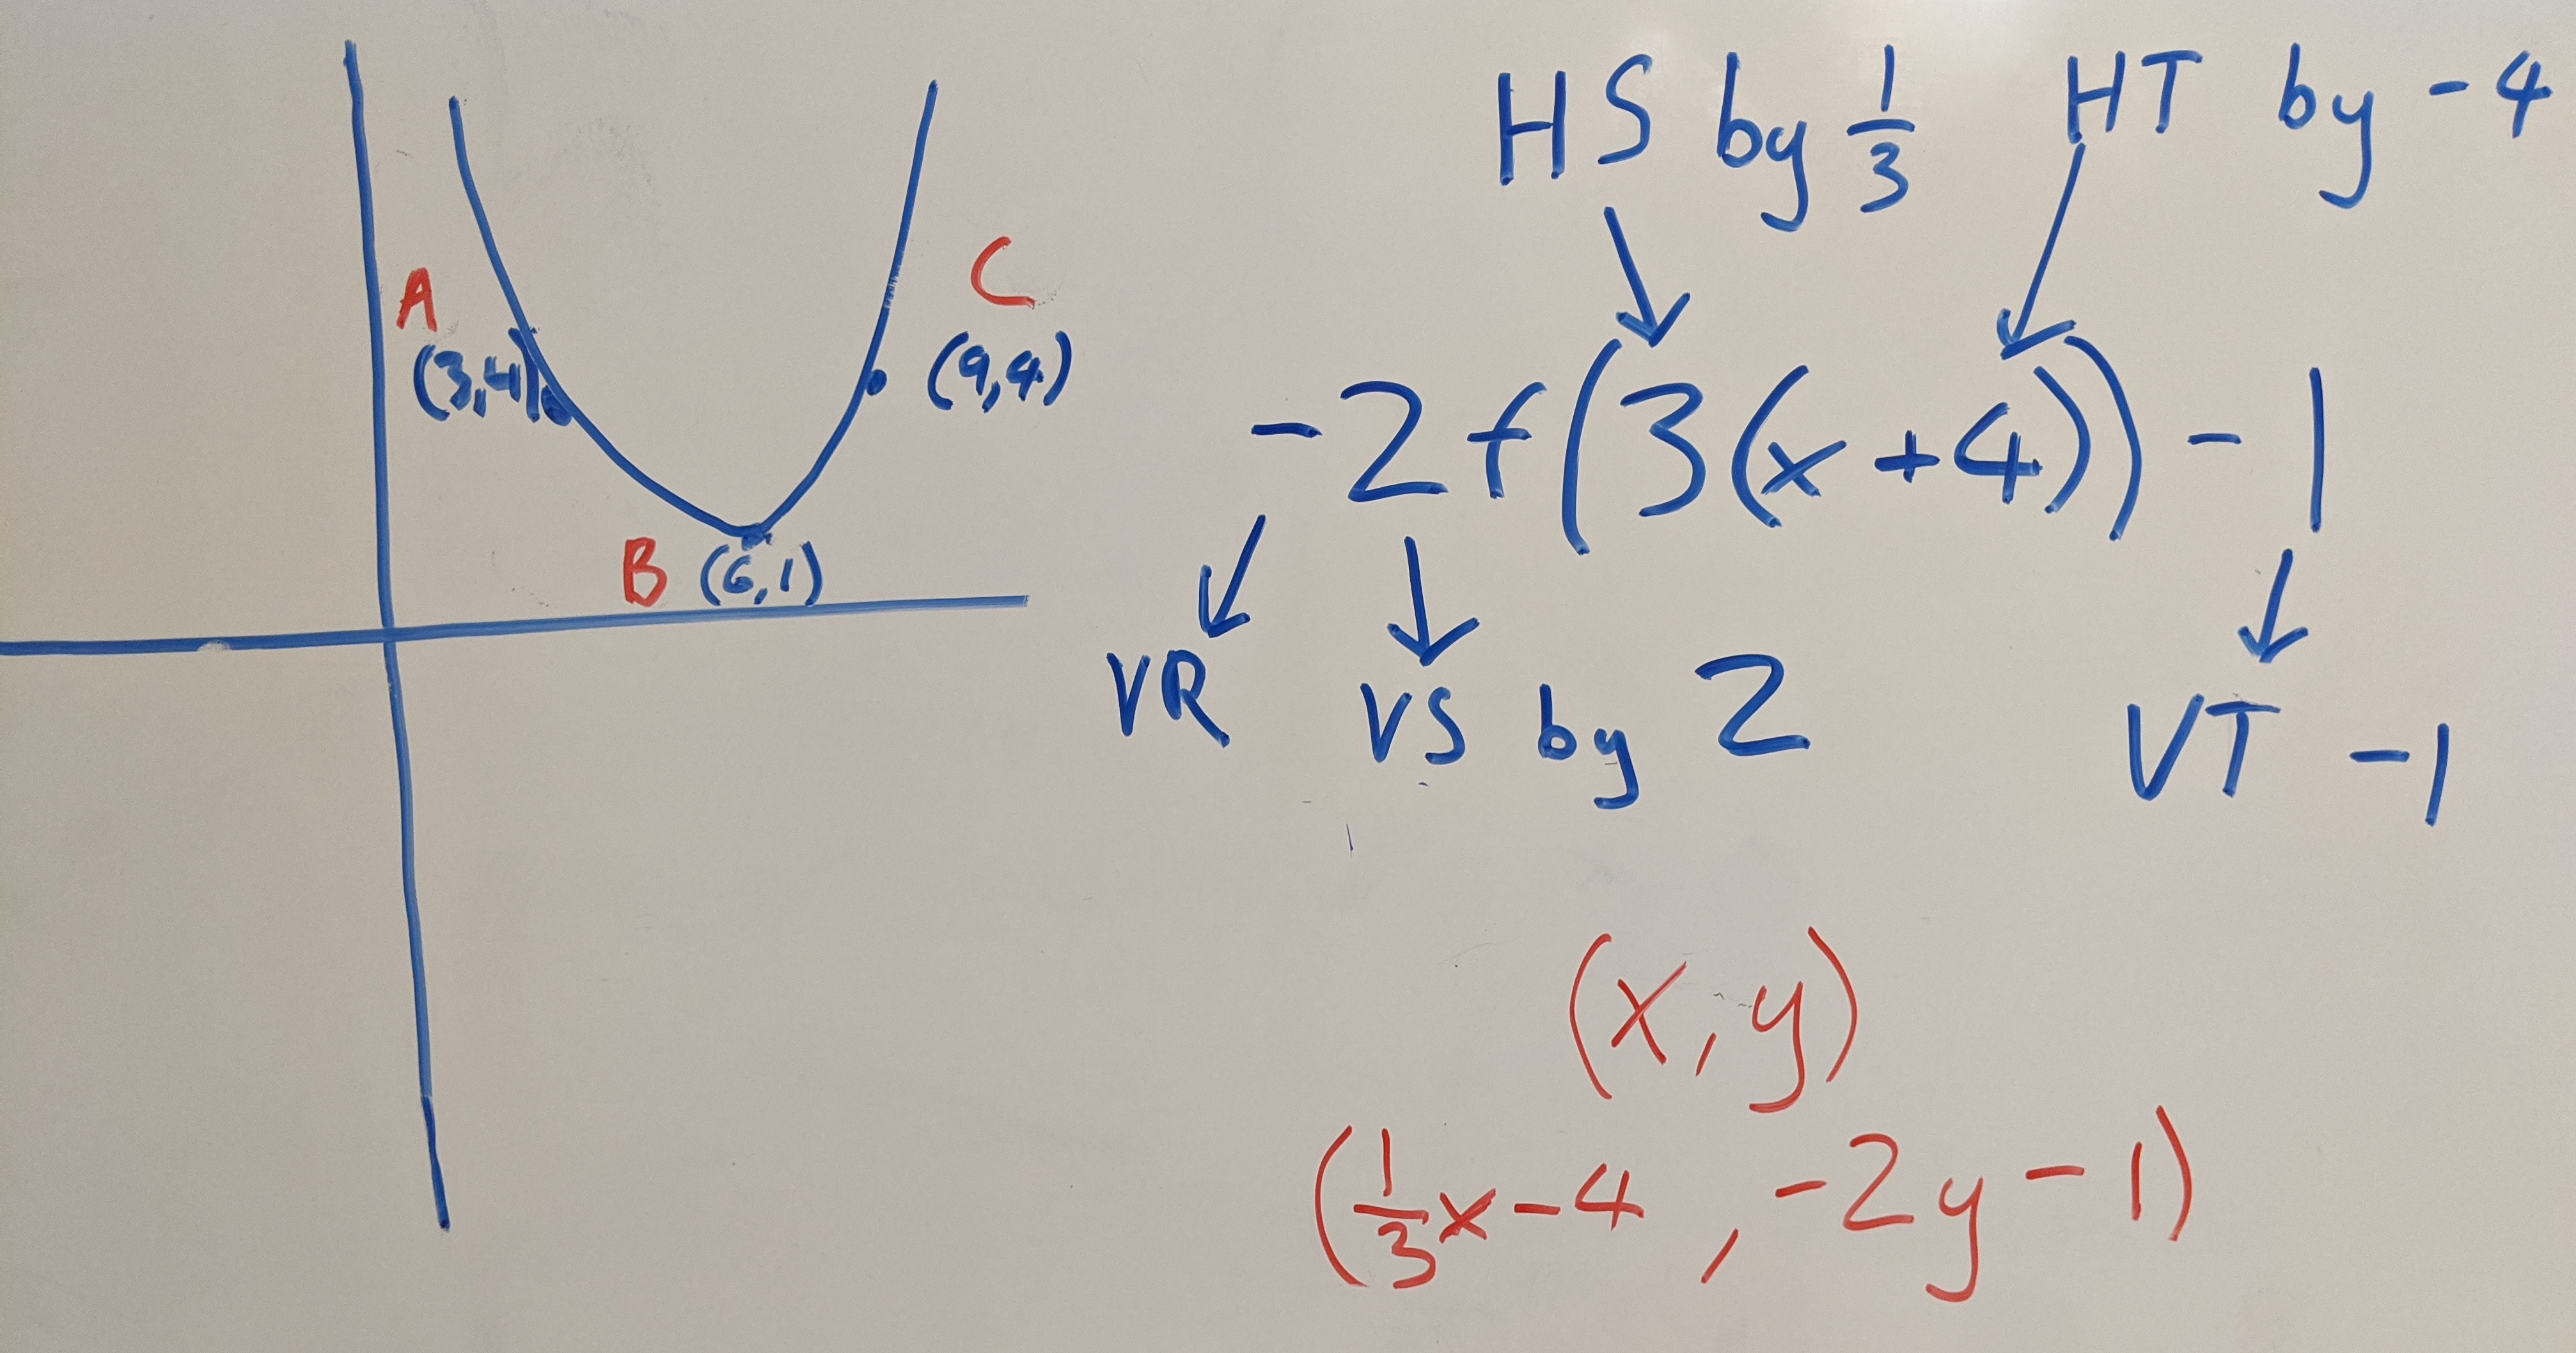 HS by 1/3
HT by -4
A
(3,4)
C
(9,4)
B (6,1)
-2f(3(x+4))-1
VR
VS by 2
VT -1
(x,y)
(1/3x-4, -2y-1)